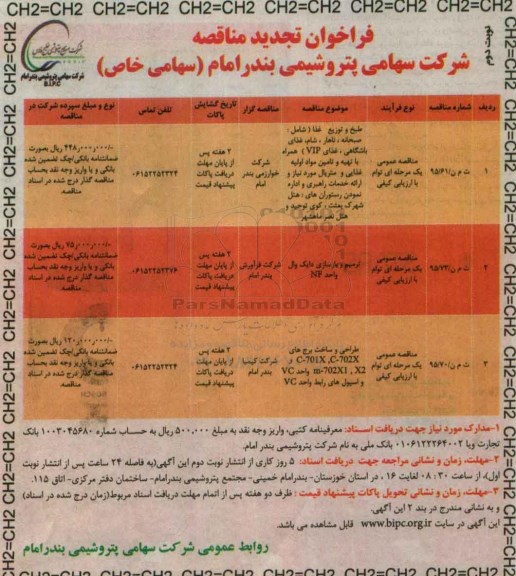 CH2=CH2 CH2=CH2 CH2=CH2 CH2=CH2 CH2=CH2 CH2=CH2 CH2=CH2
نوبت دوم
فراخوان تجدید مناقصه
شرکت سهامی پتروشیمی بندرامام (سهامی خاص)
شرکت سهامی پتروشیمی بندرامام
B.I.P.C
ردیف
شماره مناقصه
نوع فرآیند
موضوع مناقصه
مناقصه گزار
تاریخ گشایش پاکات
تلفن تماس
نوع و مبلغ سپرده شرکت در مناقصه
۱
ت م ن/۹۵/۶۱
مناقصه عمومی
یک مرحله ای توام
با ارزیابی کیفی
طبخ و توزیع غذا ( شامل :
صبحانه ، ناهار ، شام، غذای
باشگاهی ، غذای VIP ) همراه
با تهیه و تامین مواد اولیه
غذایی و متریال مورد نیاز و
ارائه خدمات راهبری و اداره
نمودن رستوران های : هتل
شهرک بعثت ، کوی توحید و
هتل نصر ماهشهر
شرکت
خوارزمی بندر
امام
۲ هفته پس
از پایان مهلت
دریافت پاکات
پیشنهاد قیمت
۰۶۱۵۲۲۵۲۳۲۴
۴۴۸٫۰۰۰٫۰۰۰/- ریال بصورت
ضمانتنامه بانکی/چک تضمین شده
بانکی و یا واریز وجه نقد بحساب
مناقصه گذار درج شده در اسناد
مناقصه
۲
ت م ن/۹۵/۷۳
مناقصه عمومی
یک مرحله ای توام
با ارزیابی کیفی
ترمیم و بازسازی دایک وال
واحد NF
شرکت فرآورش
بندر امام
۲ هفته پس
از پایان مهلت
دریافت پاکات
پیشنهاد قیمت
۰۶۱۵۲۲۵۲۳۷۶
۷۵٫۰۰۰٫۰۰۰/- ریال بصورت
ضمانتنامه بانکی/چک تضمین شده
بانکی و یا واریز وجه نقد بحساب
مناقصه گذار درج شده در اسناد
مناقصه
ParsNamadData
۳
ت م ن/۹۵/۷۰
مناقصه عمومی
یک مرحله ای توام
با ارزیابی کیفی
طراحی و ساخت برج های
C-701X ,C-702X و
m-702X1 , X2 واحد VC
و اسپول های رابط واحد VC
شرکت کیمیا
بندر امام
۲ هفته پس
از پایان مهلت
دریافت پاکات
پیشنهاد قیمت
۰۶۱۵۲۲۵۲۳۲۴
۱۲۰٫۰۰۰٫۰۰۰/- ریال بصورت
ضمانتنامه بانکی/چک تضمین شده
بانکی و یا واریز وجه نقد بحساب
مناقصه گذار درج شده در اسناد
مناقصه
۱-مدارک مورد نیاز جهت دریافت اسناد: معرفینامه کتبی، واریز وجه نقد به مبلغ ۵۰۰٫۰۰۰ ریال به حساب شماره ۱۰۰۳۰۴۵۶۸۰ بانک
تجارت ویا ۰۱۰۶۱۲۲۲۶۴۰۰۲ بانک ملی به نام شرکت پتروشیمی بندر امام.
۲-مهلت، زمان و نشانی مراجعه جهت دریافت اسناد: ۵ روز کاری از انتشار نوبت دوم این آگهی(به فاصله ۲۴ ساعت پس از انتشار نوبت
اول)، از ساعت ۰۸:۳۰ لغایت ۱۶ ، در استان خوزستان- بندرامام خمینی- مجتمع پتروشیمی بندرامام- ساختمان دفتر مرکزی- اتاق ۱۱۵.
۳-مهلت، زمان و نشانی تحویل پاکات پیشنهاد قیمت : ظرف دو هفته پس از اتمام مهلت دریافت اسناد مربوط(زمان درج شده در اسناد)
و به نشانی مندرج در بند ۲ این آگهی.
این آگهی در سایت www.bipc.org.ir قابل مشاهده می باشد.
روابط عمومی شرکت سهامی پتروشیمی بندرامام